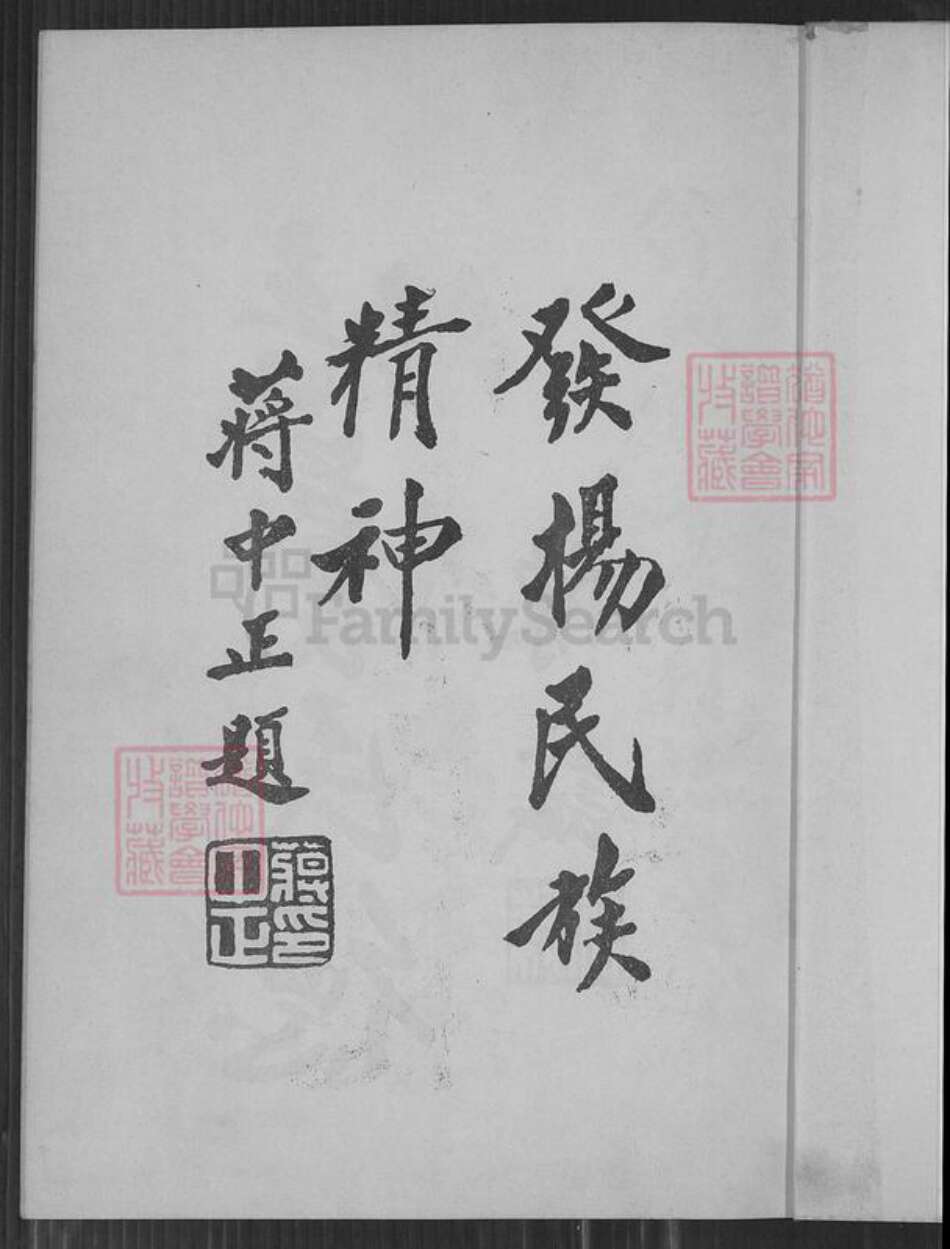 發揚民族
精神
蔣中正題
蔣中正印
譜學會
收藏
譜學會
收藏
FamilySearch